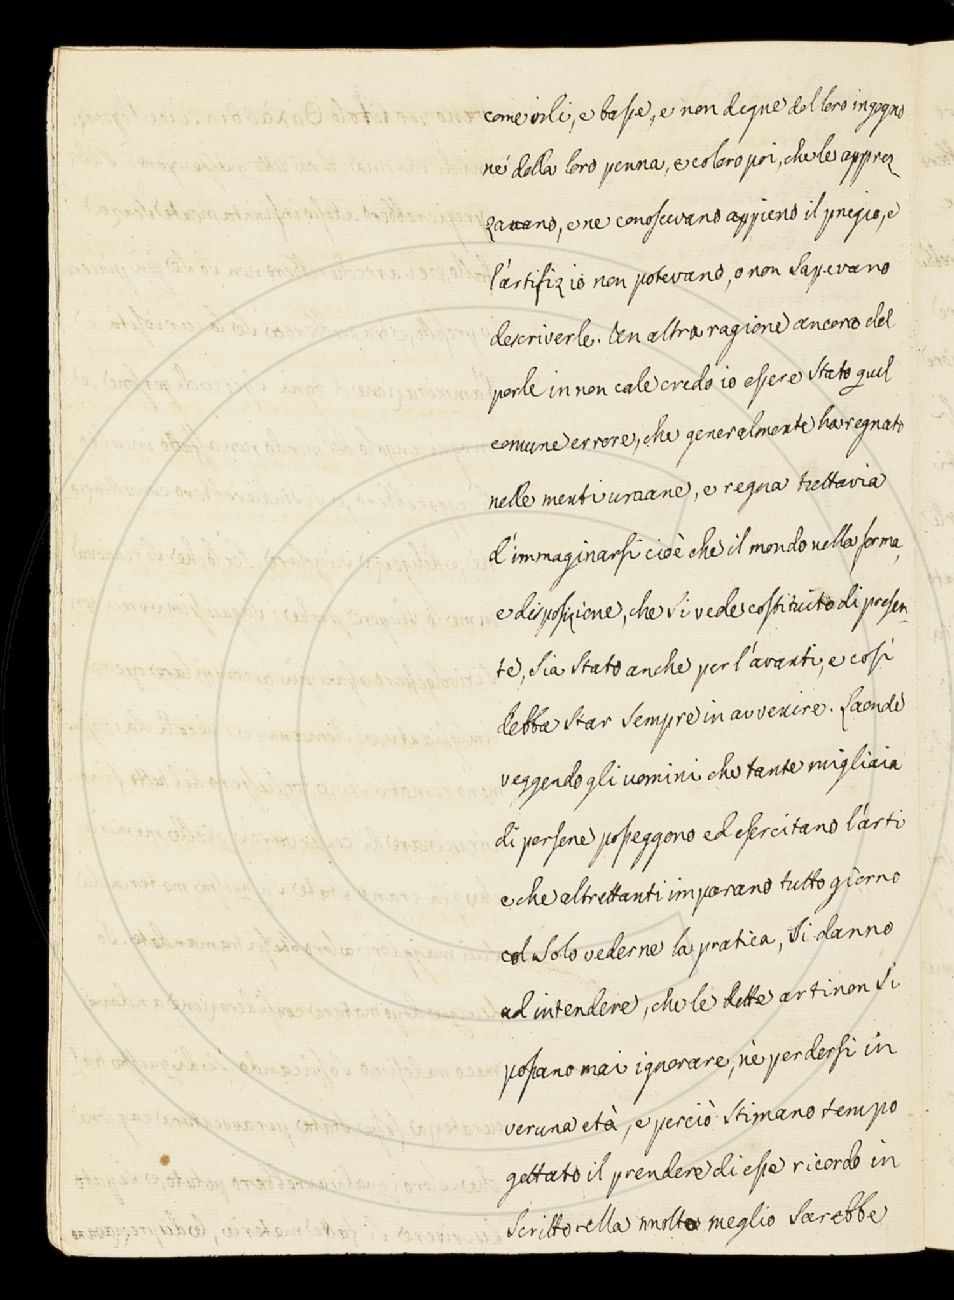 come vili, e basse, e non degne del loro ingegno
né della loro penna, e coloro poi, che le apprez
zavano, e ne conoscevano appieno il pregio, e
l'artifizio non potevano, o non sapevano
descriverle. Un altra ragione ancora del
porle in non cale credo io essere stato quel
comune errore, che generalmente ha regnato
nelle menti umane, e regna tuttavia
d'immaginarsi cioè che il mondo nella forma,
e disposizione, che si vede costituito di presen
te, sia stato anche per l'avanti, e così
debba star sempre in avvenire. Laonde
veggendo gli uomini che tante migliaia
di persone posseggono ed esercitano l'arti
e che altrettanti imparano tutto giorno
col solo vederne la pratica, si danno
ad intendere, che le dette arti non si
possano mai ignorare, nè perdersi in
veruna età, e perciò stimano tempo
gettato il prendere di esse ricordo in
scritto ella molto meglio sarebbe